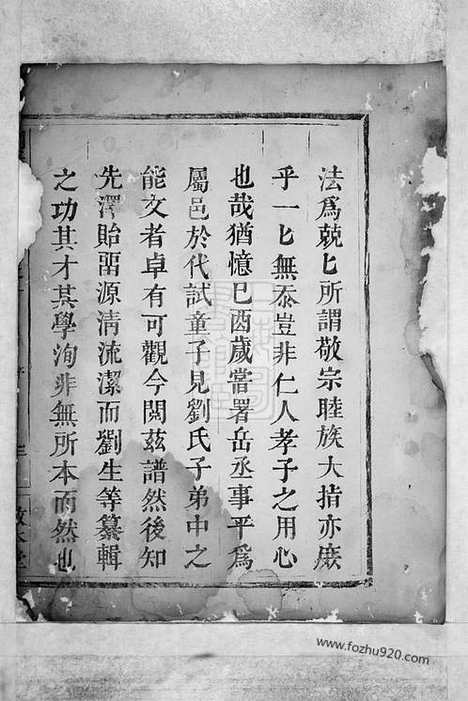 法爲兢匕所謂敬宗睦族大指亦庶
乎一匕無忝豈非仁人孝子之用心
也哉猶憶巳酉歲嘗署岳丞事平爲
屬邑於代試童子見劉氏子弟中之
能文者卓有可觀今閱茲譜然後知
先澤貽畱源清流潔而劉生等纂輯
之功其才其學洵非無所本而然也
www.fozhu920.com